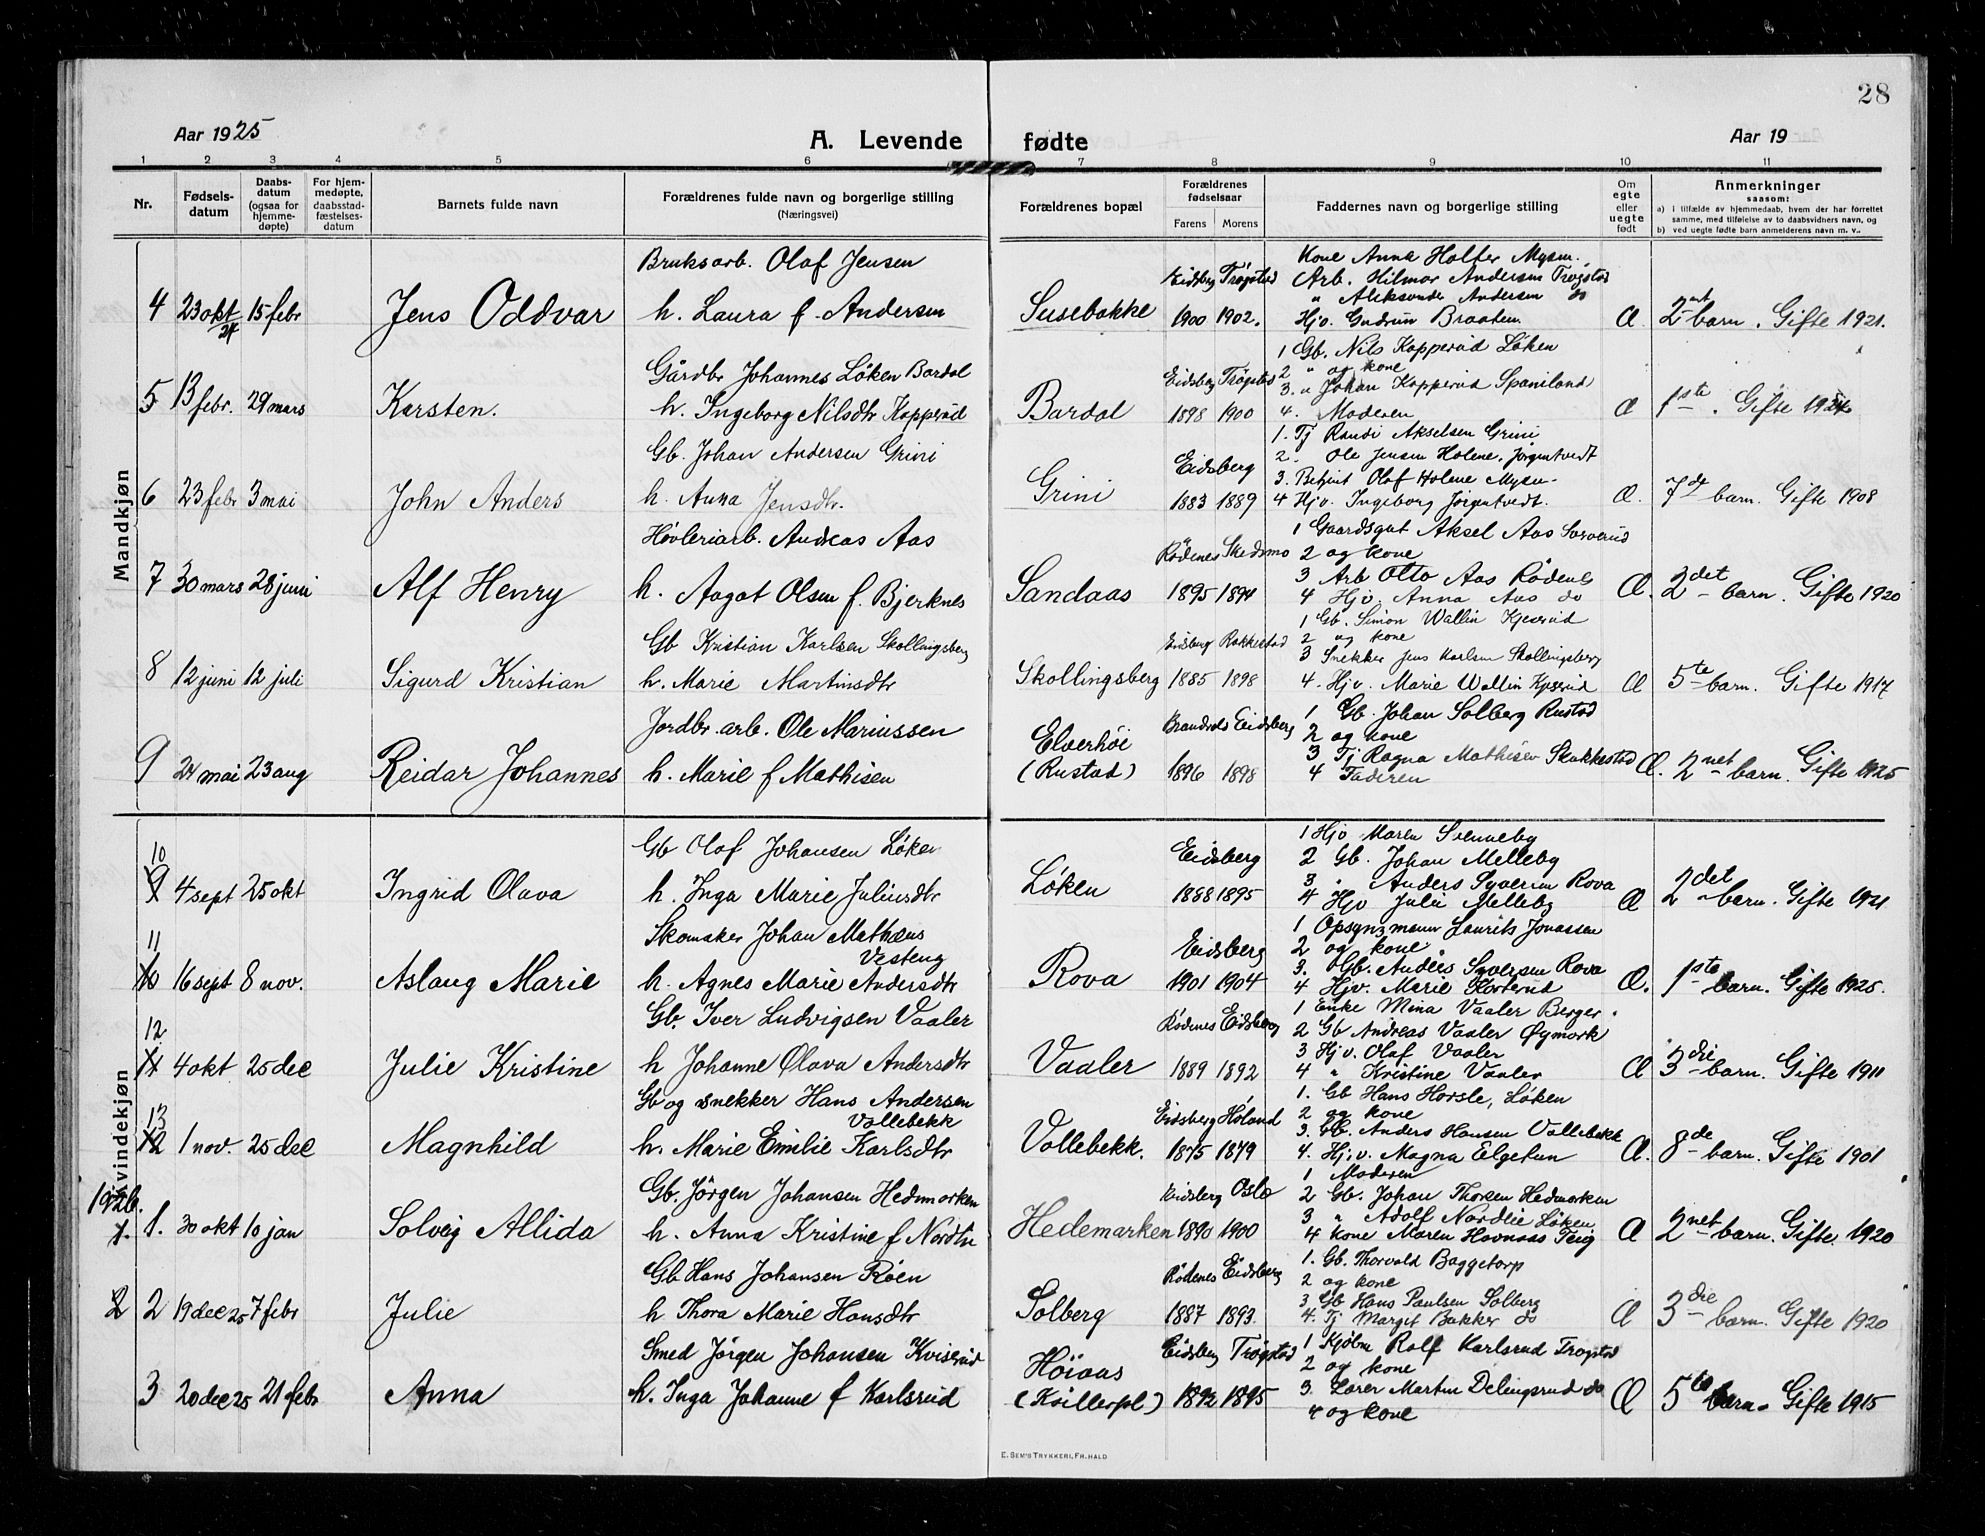 28
Aar 1925 A. Levende fødte Aar 19
1 2 3 4 5 6 7 8 9 10 11
Nr. Fødsels-datum Daabs-datum (ogsaa for hjemme-døpte) For hjem-medøpte, daabsstad-fæstelses-datum Barnets fulde navn Forældrenes fulde navn og borgerlige stilling (Næringsvei) Forældrenes bopæl Forældrenes fødselsaar Farens Morens Faddernes navn og borgerlige stilling Om egte eller uegte født Anmerkninger saasom:
a) i tilfælde av hjemmedaab, hvem der har forrettet samme, med tilføielse av to daabsvidners navn, og
b) ved uegte fødte barn anmelderens navn m. v..
Mandkjøn
Bruksarb. Olaf Jensen
4 23 okt 24 15 febr Jens Oddvar h. Laura f. Andersen Susebakke Eidsberg Trøgstad 1900 1902.
Kone Anna Holter Mysen.
Arb. Hilmar Andersen Trøgstad
" Aleksander Andersen do
Hjv. Gudrun Braaten
Æ 2net barn. Gifte 1921.
Gårdbr Johannes Løken Bardal
5 13 febr. 29 mars Karsten. h. Ingeborg Nilsdtr Kopperud Bardal Eidsberg Trøgstad 1898 1900
1 Gb. Nils Kopperud Løken
2 " og kone
3. " Johan Kopperud Spaniland
4. Moderen
Æ 1ste. Gifte 1924
Gb. Johan Andersen Grini
6 23 febr 3 mai John Anders h. Anna Jensdtr. Grini Eidsberg 1883 1889
1. Tj Randi Akselsen Grini
2. Ole Jensen Holene, Jørgentvedt
3. Betjent Olaf Holene Mysen
4 Hjv. Ingeborg Jørgentvedt.
Æ. 7de barn. Gifte 1908
Høvleriarb. Andreas Aas
7 30 mars 28 juni Alf Henry h. Aagot Olsen f. Bjerknes Sandaas Rødenes Skedsmo 1895 1894
1 Gaardsgut Aksel Aas Sorverud
2 og kone
3 Arb Otto Aas Rødenes
4 Hjv. Anna Aas do
Æ. 2det barn. Gifte 1920
Gb Kristian Karlsen Skollingsberg
8 12 juni 12 juli Sigurd Kristian h. Marie Martinsdtr Skollingsberg Eidsberg Rakkestad 1885 1898
1 Gb. Simon Wallin Kjeserud
2 og kone
3 Snekker Jens Karlsen Skollingsberg
4. Hjv. Marie Wallin Kjeserud
Æ 5te barn. Gifte 1917
Jordbr. arb. Ole Mariussen
9 24 mai 23 aug Reidar Johannes h. Marie f Mathisen Elverhøi (Rustad) Eidsberg 1896 1898
1 Gb. Johan Solberg Rustad
2 og kone
3 Tj Ragna Mathisen Skakkestad
4 Faderen
Æ. 2net barn. Gifte 1925
Kvindekjøn
Gb Olaf Johansen Løken
10 9 4 sept 25 okt Ingrid Olava h. Inga Marie Juliusdtr Løken Eidsberg 1888 1895
1 Hjv Maren Svenneby
2 Gb. Johan Melleby
3 " Anders Syversen Rova
4 Hjv Julie Melleby
Æ 2det barn. Gifte 1921
Skomaker Johan Mathæus Vesteng
11 10 16 sept 8 nov. Aslaug Marie h. Agnes Marie Andersdtr Rova Eidsberg 1901 1904
1 Opsynsmann Laurits Jonassen
2 og kone
3. Gb. Anders Syversen Rova
4 Hjv. Marie Kørterud
Æ. 1ste barn. Gifte 1925.
Gb. Iver Ludvigsen Vaaler
12 11 4 okt 25 dec Julie Kristine h Johanne Olava Andersdtr Vaaler Rødenes Eidsberg 1889 1892
1 Enke Mina Vaaler Berger
2 Gb Andreas Vaaler Øymork
3 Hjv. Olaf Vaaler
4 " Kristine Vaaler
Æ 3die barn. Gifte 1911
Gb og snekker Hans Andersen Vollebekk
13 12 1 nov. 25 dec Magnhild h. Marie Emilie Karlsdtr Vollebekk. Eidsberg Høland 1875 1879
1. Gb Hans Horsle, Løken
2 og kone
3. Gb. Anders Hansen Vollebekk
4. Hjv. Magna Elgetun
Æ. 8de barn. Gifte 1901
Gb. Jörgen Johansen Hedmarken
1926. 1. 1. 30 okt 10 jan Solveig Allida h. Anna Kristine f Nordlie Hedemarken Eidsberg Oslo 1890 1900
1 Moderen
2 Gb. Johan Thorsen Hedmarken
3 " Adolf Nordlie Løken
4 Kone Maren Hovnaas Teig
Æ 2net barn. Gifte 1920
Gb Hans Johansen Røen
2 2 19 dec 25 7 febr Julie h Thora Marie Hansdtr Solberg Rødenes Eidsberg 1887 1893.
1. Gb. Thorvald Baggetorp
2 og kone
3 Gb Hans Paulsen Solberg
4. Tj Margit Bakker do
Æ 3die barn. Gifte 1920
Smed Jørgen Johansen Kviserud
3 20 dec 25 21 febr Anna h. Inga Johanne f Karlsrud Höiaas (Kvillerpl) Eidsberg Trøgstad 1892 1895
1 Kjøbm Rolf Karlsrud Trøgstad
2 og kone
3. Lærer Martin Delingsrud do
4 og kone
Æ 5te barn. Gifte 1915
E. SEM'S TRYKKERI, FR.HALD